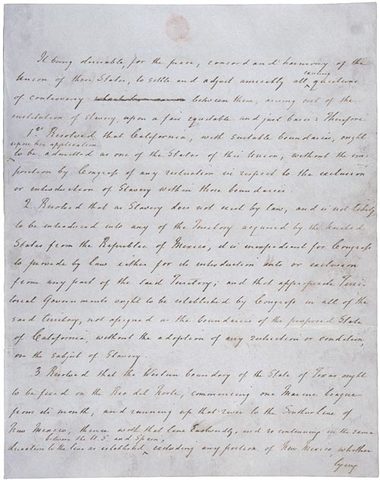 It being desirable, for the peace, concord and harmony of the
Union of these States, to settle and adjust amicably all existing questions
of controversy between them, arising out of the
institution of Slavery, upon a fair equitable and just basis: Therefore
1st Resolved that California, with suitable boundaries, ought
upon her application
to be admitted as one of the States of this Union, without the im-
position by Congress of any restriction in respect to the exclusion
or introduction of Slavery within those boundaries.
2. Resolved that as Slavery does not exist by law, and is not likely
to be introduced into any of the Territory acquired by the United
States from the Republic of Mexico, it is inexpedient for Congress
to provide by law either for its introduction into or exclusion
from any part of the said Territory; and that appropriate Terri-
torial Governments ought to be established by Congress in all of the
said Territory, not assigned as the boundaries of the proposed State
of California, without the adoption of any restriction or condition
on the subject of Slavery.
3 Resolved that the Western boundary of the State of Texas ought
to be fixed on the Rio del Norte, commencing one Marine league
from its mouth, and running up that river to the Southern line of
New Mexico, thence with that line Eastwardly, and so continuing in the same
between the U.S. and Spain,
direction to the line as established, excluding any portion of New Mexico, whether
lying